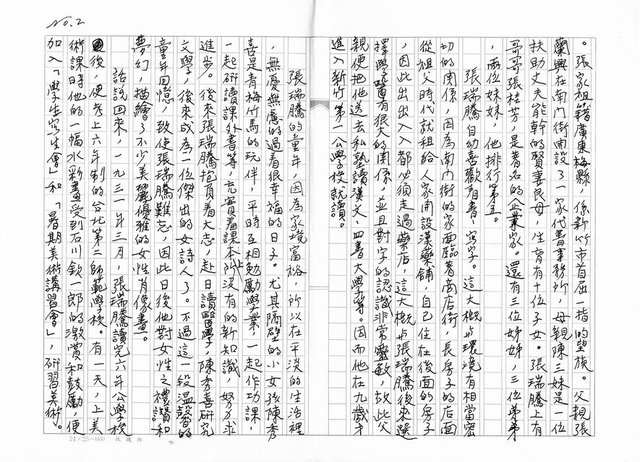 No.2
。張家祖籍廣東梅縣,係新竹市首屈一指的望族。父親張
蘭興在南門街開設了一家代書事務所,母親陳三妹是一位
扶助丈夫能幹的賢妻良母,生育有十位子女。張瑞騰上有
哥哥張桂芳,是著名的企業家。還有三位姊姊,三位弟弟
,兩位妹妹,他排行第五。
張瑞騰自幼喜觀看書、寫字。這大概與環境有相當密
切的關係,因為南門街的家面臨著商店街,長房子的店面
從祖父時代就租給人家開設漢藥舖,自己住在後面的房子
,因此出出入入都必須走過藥店,這大概與張瑞騰後來選
擇學醫有很大的關係,並且對字的認識非常靈敏,故此父
親便把他送去私塾讀漢文、四書大學等。因而他在九歲才
進入新竹第一公學校就讀。
張瑞騰的童年,因為家境富裕,所以在平淡的生活裡
,無憂無慮的過着很幸福的日子。尤其隔壁的小女孩陳秀
喜是青梅竹馬的玩伴,平時互相勉勵學業,一起作功課,
一起研讀課外書等,充實着課本所沒有的新知識,努力求
進步。後來張瑞騰抱負着大志,赴日讀醫學,陳秀喜研究
文學,後來成為一位傑出的女詩人了。不過這一段溫馨的
童年回憶,致使張瑞騰難忘,因此日後他對女性之禮讚和
夢幻,描繪了不少美麗優雅的女性肖像畫。
話說回來,一九三一年三月,張瑞騰讀完六年公學校
後,便考上六年制的台北第二師範學校。有一天,上美
術課時他的一幅水彩畫受到石川欽一郎的激賞和鼓勵,便
加入「學生寫生會」和「暑期美術講習會」,研習美術。
24×25=600